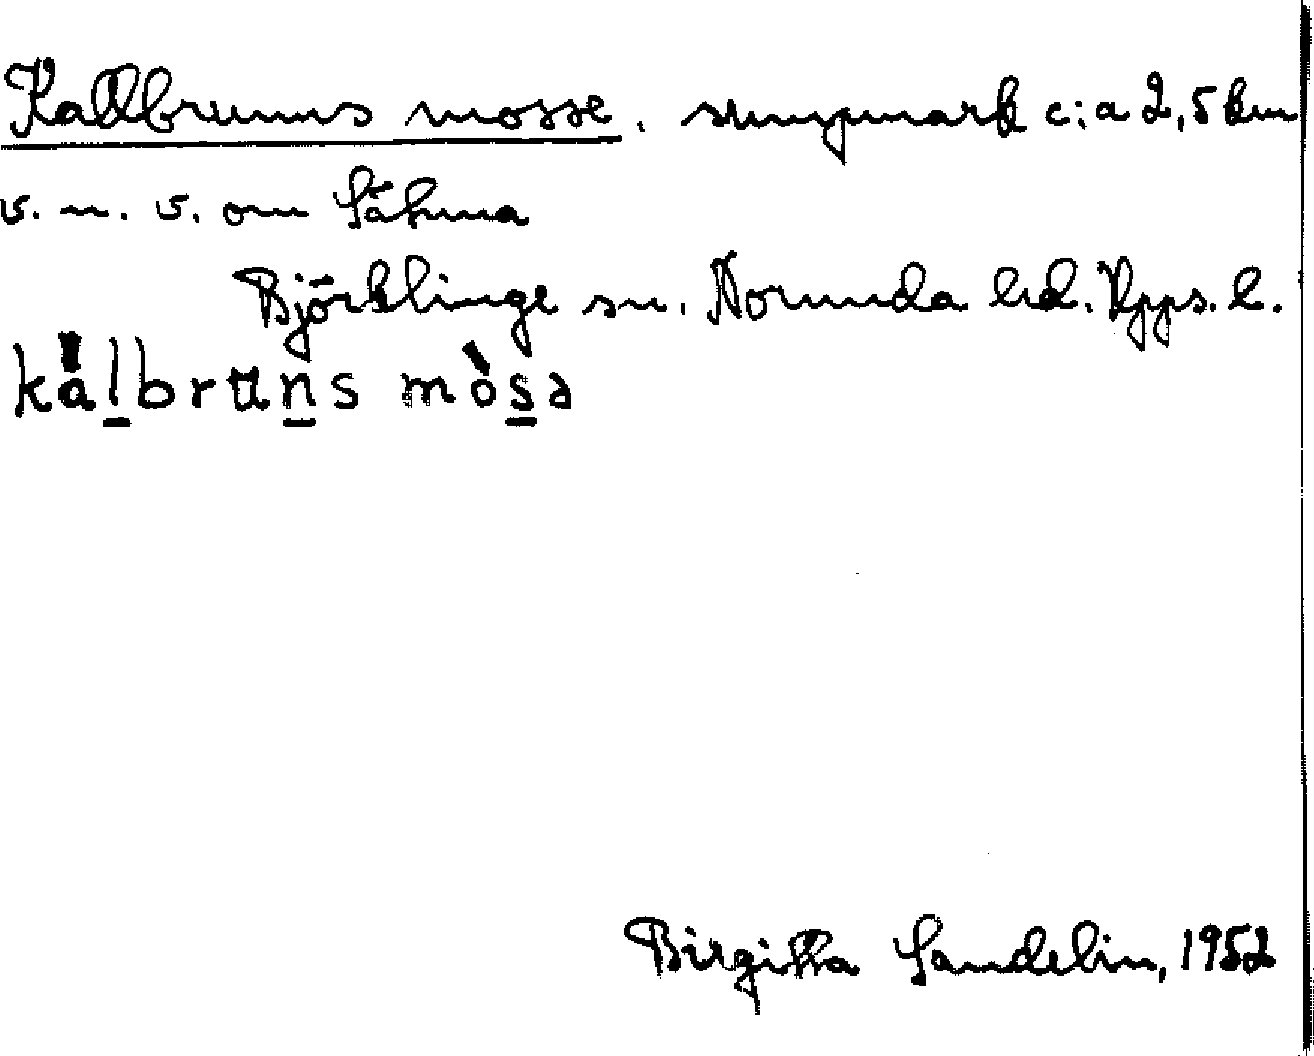 Kallbrunns mosse. sumpmark c:a 2,5 km
v. n. v. om Sätuna
Björklinge sn. Norunda hd. Upps. l.
kàl̲brun̲s mòs̲a
Birgitta Sandelin, 1952